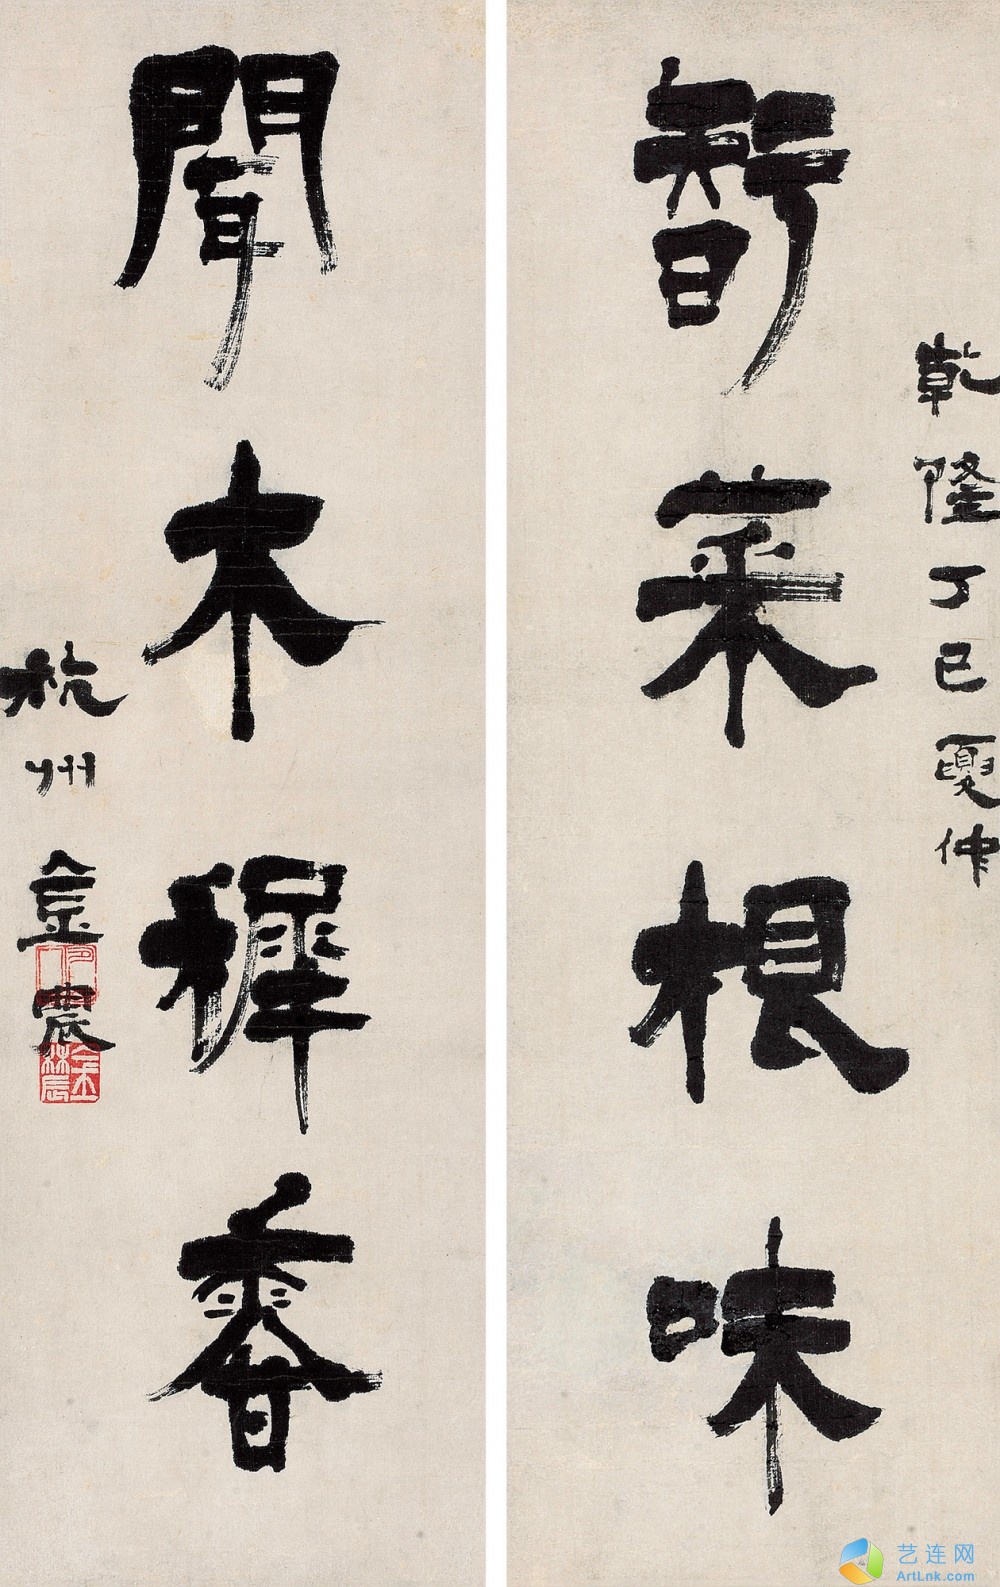 乾隆丁巳夏仲
智菜根味
聞木樨香
杭州金農
艺连网
ArtLnk.com